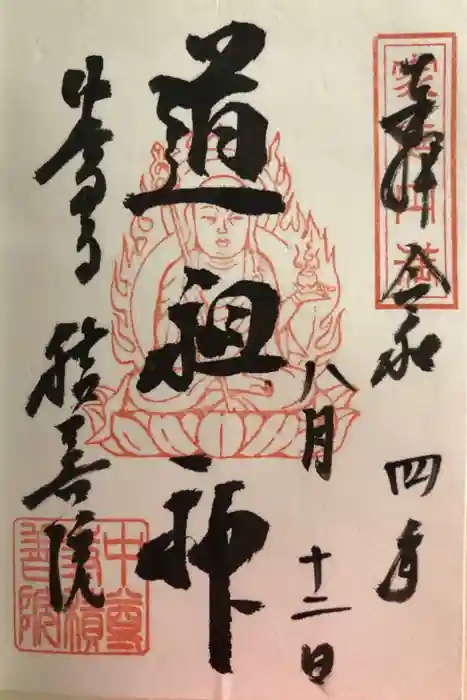 奉拝 令和四年
八月十二日
道祖神
中尊寺 積善院
中尊
寺積
善院